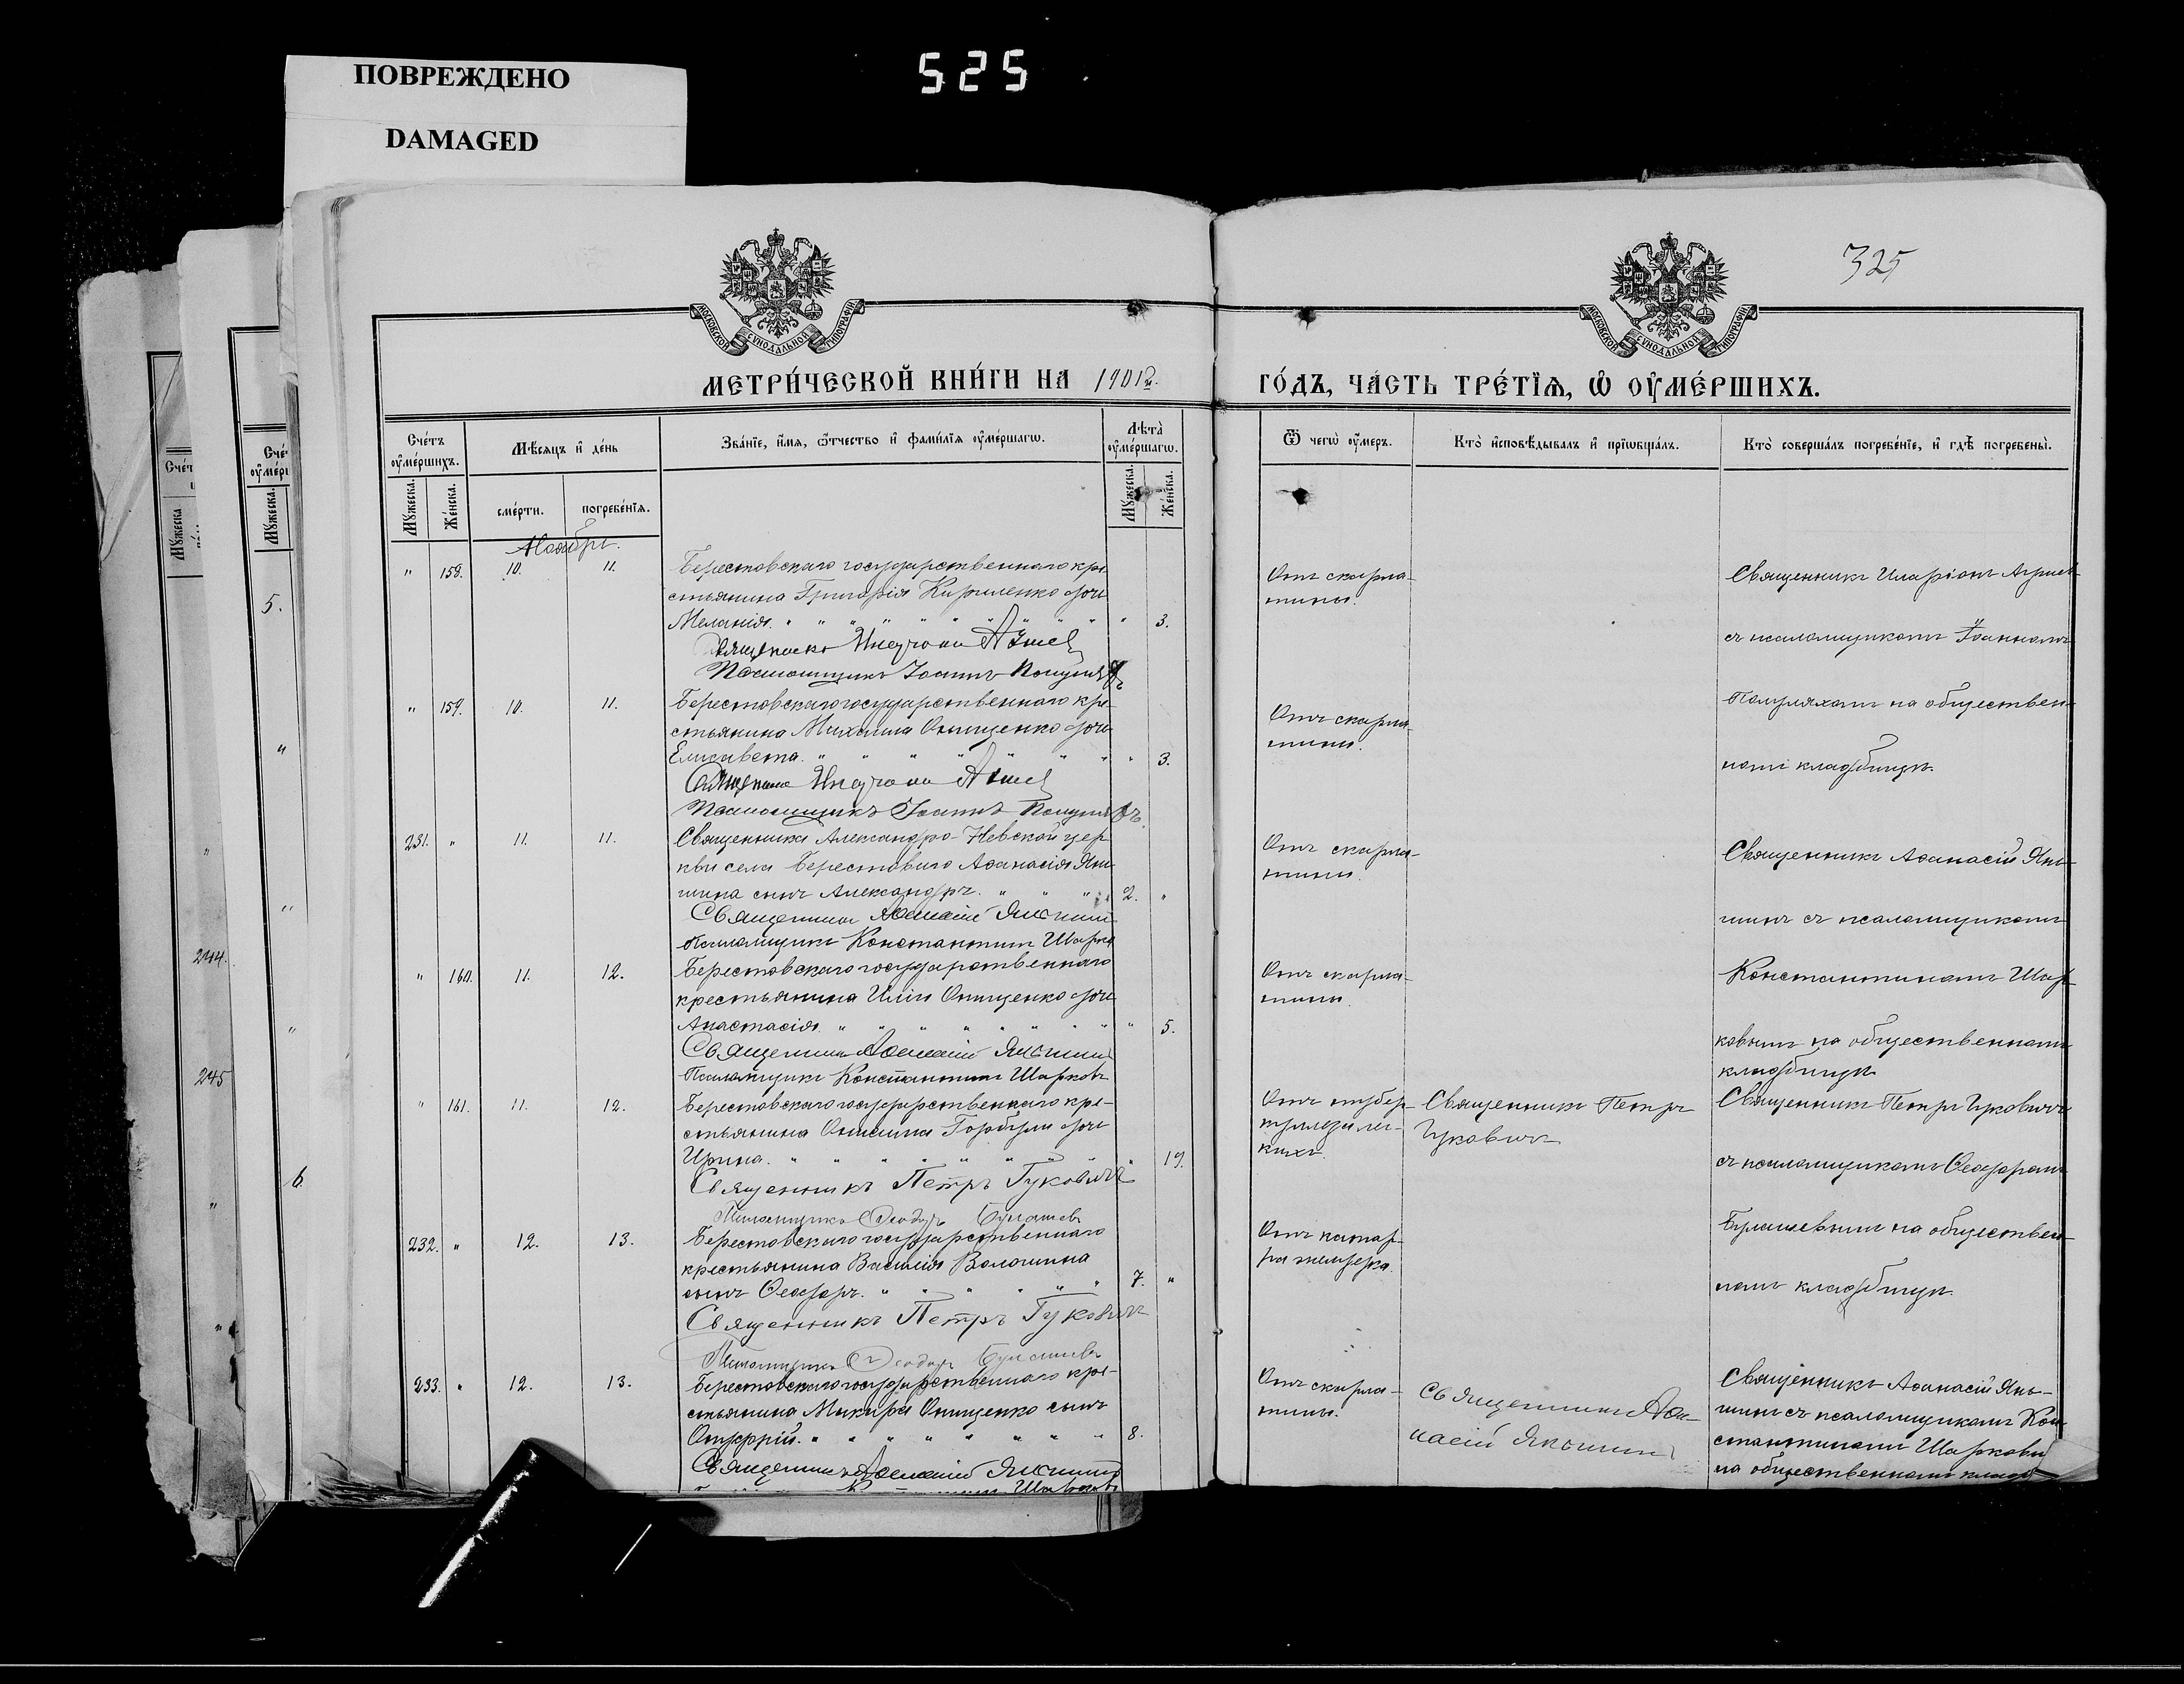 ПОВРЕЖДЕНО
DAMAGED
525
325
МОСКОВСКОЙ СУНОДАЛЬНОЙ ТИПОГРАФІИ
МОСКОВСКОЙ СУНОДАЛЬНОЙ ТИПОГРАФІИ
МЕТРИ́ЧЕСКОЙ КНИ́ГИ НА 1901
ГО́ДЪ, ЧА́СТЬ ТРЕ́ТЇѦ, Ѡ҆ ОУ҆МЕ́РШИХЪ.
Сче́тъ оу҆ме́ршихъ.
Мꙋжеска.
Же́нска.
Мѣ́сяцъ и҆ де́нь
сме́рти.
погребе́нїѧ.
Зва́нїе, и҆́мѧ, ѻ҆́тчество и҆ фами́лїѧ оу҆ме́ршагѡ.
Лѣ́та оу҆ме́ршагѡ.
Мꙋжеска.
Же́нска.
Ѿ чегѡ̀ оу҆́меръ.
Кто̀ и҆сповѣ́дывалъ и҆ прїѡбща́лъ.
Кто̀ соверша́лъ погребе́нїе, и҆ гдѣ̀ погребены̀.
Ноябрь.
" 158. 10. 11. Берестовскаго государственнаго кре-
стьянина Григорія Кириленко дочь
Меланія. " 3.
Псаломщикъ Іоаннъ
Отъ скарла-
тины.
Священникъ Иларіонъ
съ псаломщикомъ Іоанномъ
на обществен-
номъ кладбищѣ.
" 159. 10. 11. Берестовскаго государственнаго кре-
стьянина Михаила Онищенко дочь
Елисавета. " 3.
Псаломщикъ Іоаннъ
Отъ скарла-
тины.
231. " 11. 11. Священника Александро-Невской цер-
кви села Берестоваго Аѳанасія Яко-
шина сынъ Александръ. 2. "
Священникъ Аѳанасій Якошинъ
Псаломщикъ Константинъ Шарко
Отъ скарла-
тины.
Священникъ Аѳанасій Яко-
шинъ съ псаломщикомъ
Константиномъ Шар-
ковымъ на общественномъ
кладбищѣ
" 160. 11. 12. Берестовскаго государственнаго
крестьянина Иліи Онищенко дочь
Анастасія. " 5.
Священникъ Аѳанасій Якошинъ
Псаломщикъ Константинъ Шарковъ
Отъ скарла-
тины.
" 161. 11. 12. Берестовскаго государственнаго кре-
стьянина Онисима Горбули дочь
Ирина. " 19.
Священникъ Петръ Гуковичъ
Псаломщикъ Ѳеодоръ Булашевъ
Отъ тубер-
кулеза лег-
кихъ.
Священникъ Петръ
Гуковичъ
Священникъ Петръ Гуковичъ
съ псаломщикомъ Ѳеодоромъ
Булашевымъ на обществен-
номъ кладбищѣ.
232. " 12. 13. Берестовскаго государственнаго
крестьянина Василія Волошина
сынъ Ѳеодоръ. 7. "
Священникъ Петръ Гуковичъ
Псаломщикъ Ѳеодоръ Булашевъ
Отъ катар-
ра желудка.
233. " 12. 13. Берестовскаго государственнаго кре-
стьянина Никиры Онищенко сынъ
Онуфрій. 8.
Священникъ Аѳанасій Якошинъ
Отъ скарла-
тины.
Священникъ Аѳа-
насій Якошинъ
Священникъ Аѳанасій Яко-
шинъ съ псаломщикомъ Кон-
стантиномъ Шарковы
на общественномъ кладб
Сче́т
Мꙋжеска
Сче́
оу҆ме́р
Мꙋжеска.
5.
244.
245
6.